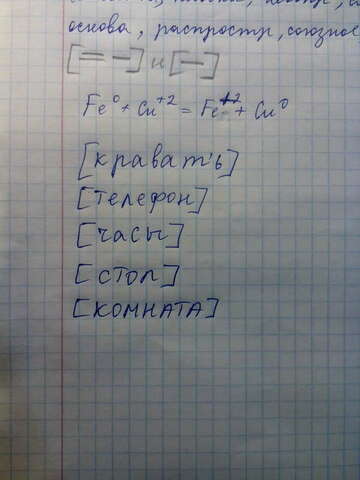 основа, распростр, союзное
[= -] и [-]
Fe⁰ + Cu⁺² = Fe⁺² + Cu⁰
[кравать]
[телефон]
[часы]
[стол]
[комната]